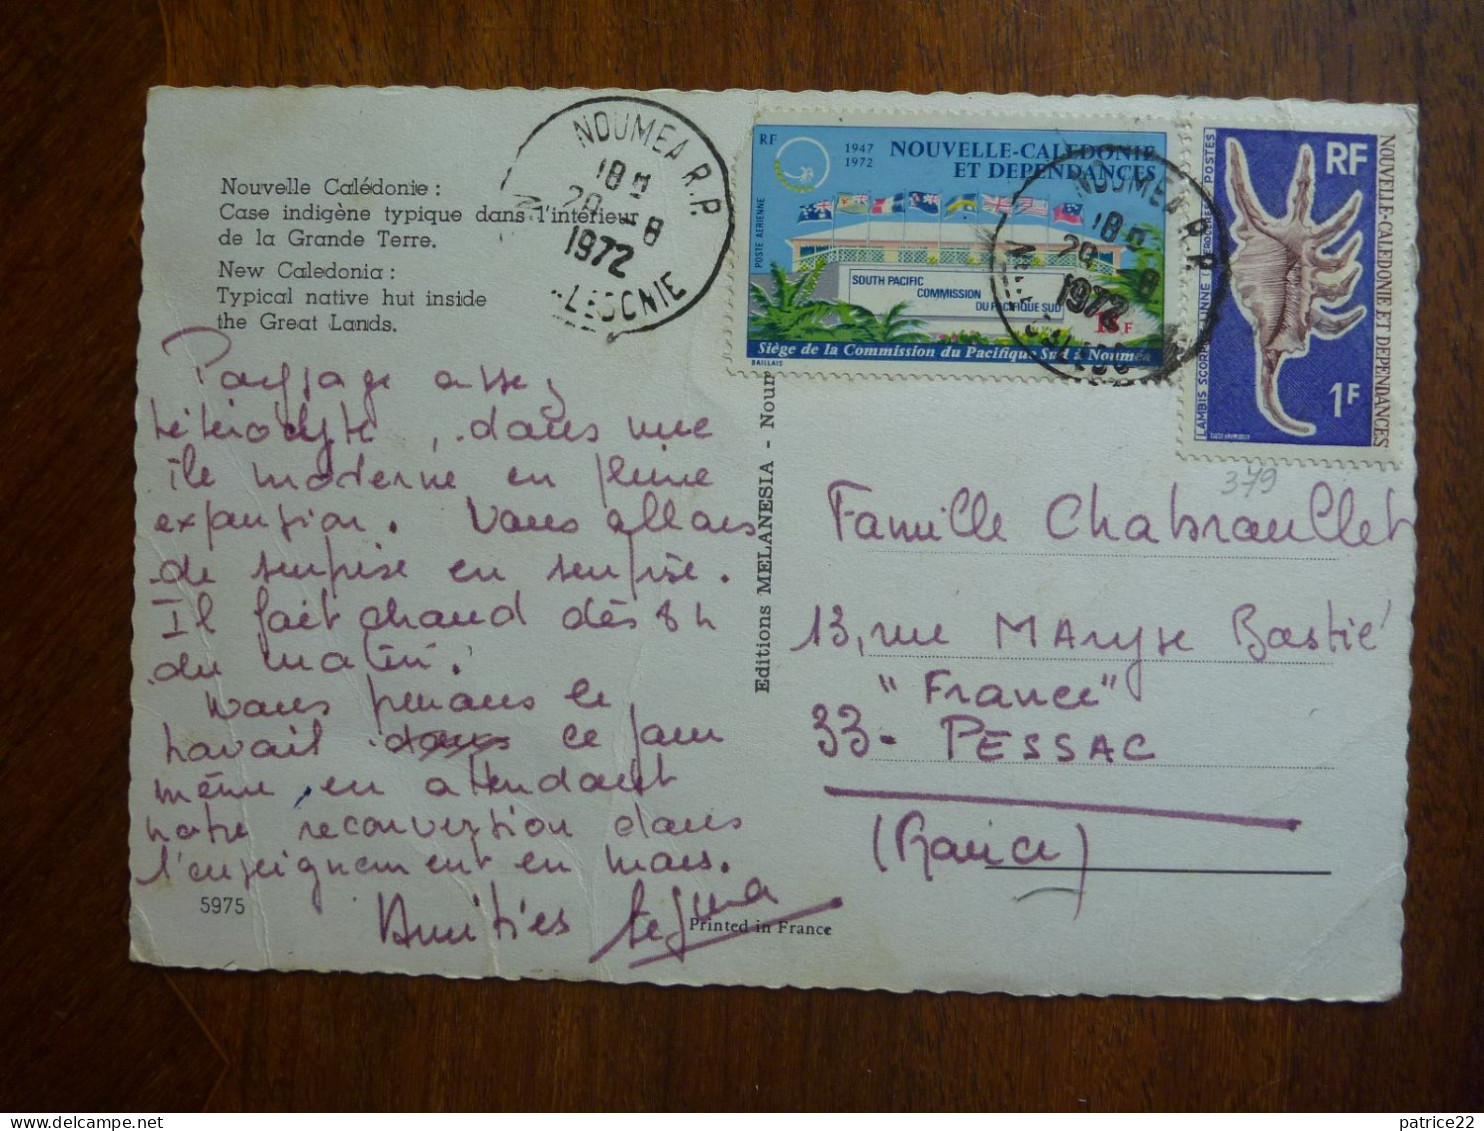 Nouvelle Calédonie :
Case indigène typique dans l'intérieur
de la Grande Terre.
New Caledonia :
Typical native hut inside
the Great Lands.
Paysage assez
hétéroclyte, dans une
île moderne en pleine
expansion. Nous allons
de surprise en surprise.
Il fait chaud dès 8h
du matin.
Nous prenons le
travail dans ce jour
même, en attendant
notre reconversion dans
l'enseignement en mars.
Amitiés
5975
Printed in France
Editions MELANESIA - Noum
NOUMEA R.P.
18 H
29 - 8
1972
LEDONIE
RF
1947
1972
NOUVELLE-CALEDONIE
ET DEPENDANCES
POSTE AERIENNE
SOUTH PACIFIC
COMMISSION
DU PACIFIQUE SUD
18F
Siège de la Commission du Pacifique Sud à Nouméa
BAILLAIS
NOUMEA R.P.
18 H
29 - 8
1972
CALEDO
RF
POSTES
NOUVELLE-CALEDONIE ET DEPENDANCES
LAMBIS SCORPIUS LINNE
1F
379
Famille Chabraullet
13, rue MAryse Bastié
"France"
33- PESSAC
(France)
patrice22